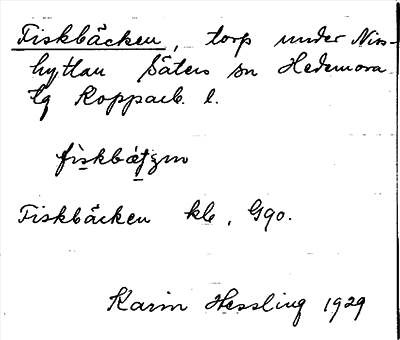 Fiskbäcken, torp under Nis-
hyttan Säters sn Hedemora
tg Kopparb. l.
Fiskbäcken kbl, G90.
Karin Hessling 1929